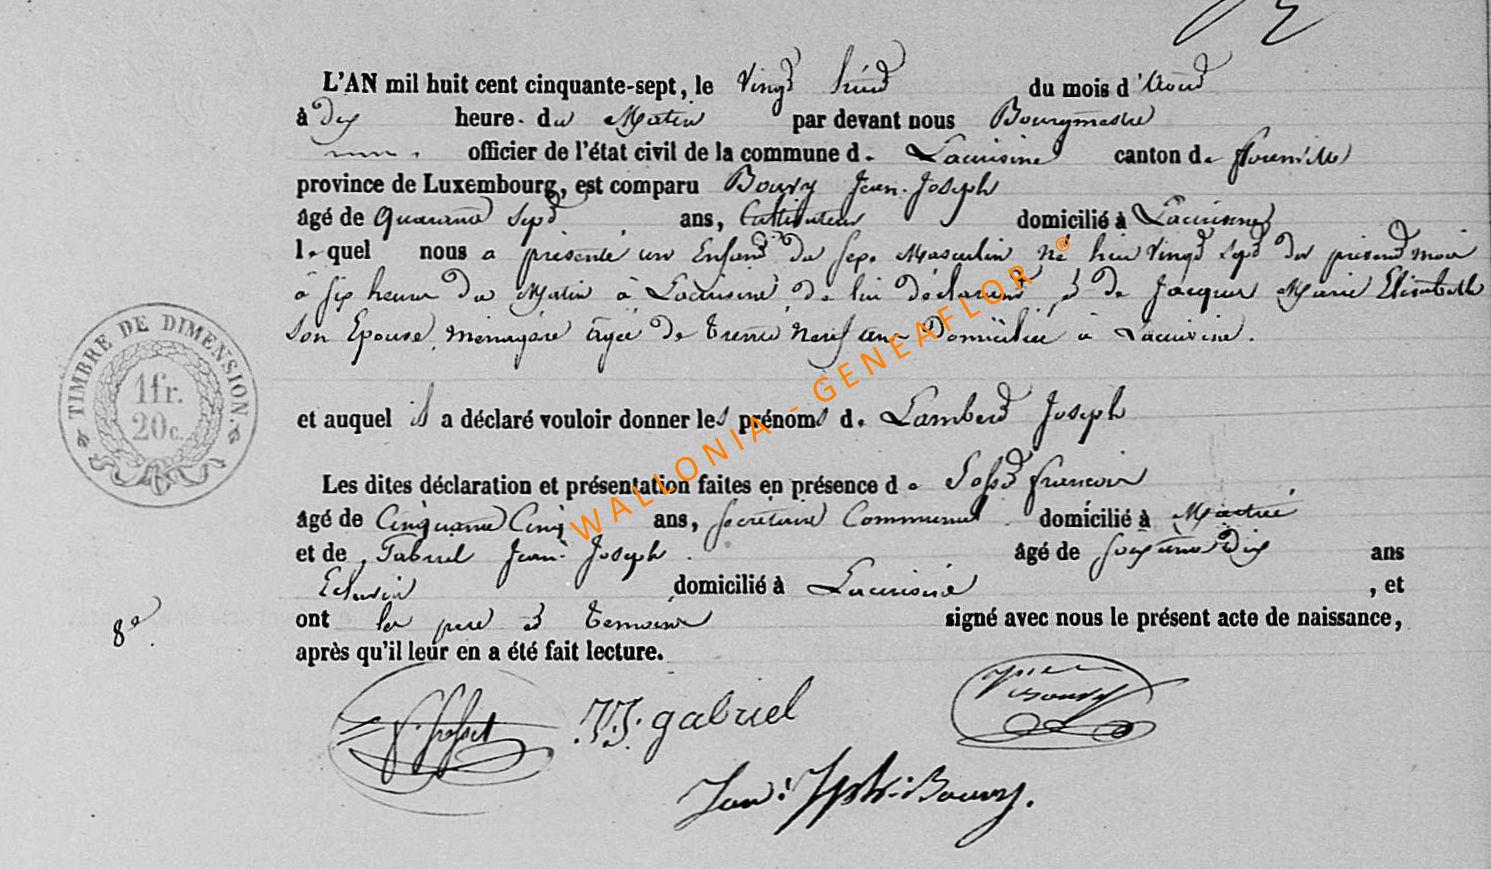 L'AN mil huit cent cinquante-sept, le Vingt huit du mois d'Aout
à Dix heure. du Matin par devant nous Bourgmestre
officier de l'état civil de la commune de Lacuisine canton de florenville
province de Luxembourg, est comparu Bouvy Jean-Joseph
âgé de Quarante Sept ans, Cultivateur domicilié à Lacuisine
lequel nous a présenté un Enfant du Sexe Masculin né hier vingt Sept du présent mois
à six heure du Matin à Lacuisine, de lui déclarant, & de Jacques Marie Elisabeth
Son Epouse, menagère âgée de trente Neuf ans Domiciliée à Lacuisine.
TIMBRE DE DIMENSION.
1 fr.
20 c.
et auquel il a déclaré vouloir donner les prénoms de Lambert Joseph
Les dites déclaration et présentation faites en présence de francois
âgé de Cinquante Cinq ans, Secrétaire Communal domicilié à
et de Gabriel Jean-Joseph âgé de soixante Dix ans
Echevin domicilié à Lacuisine, et
8e
ont les pere & temoins signé avec nous le présent acte de naissance,
après qu'il leur en a été fait lecture.
J.J. gabriel
Bouvy
Jean: Jsph: Bouvy.
WALLONIA - GENEAFLOR ®